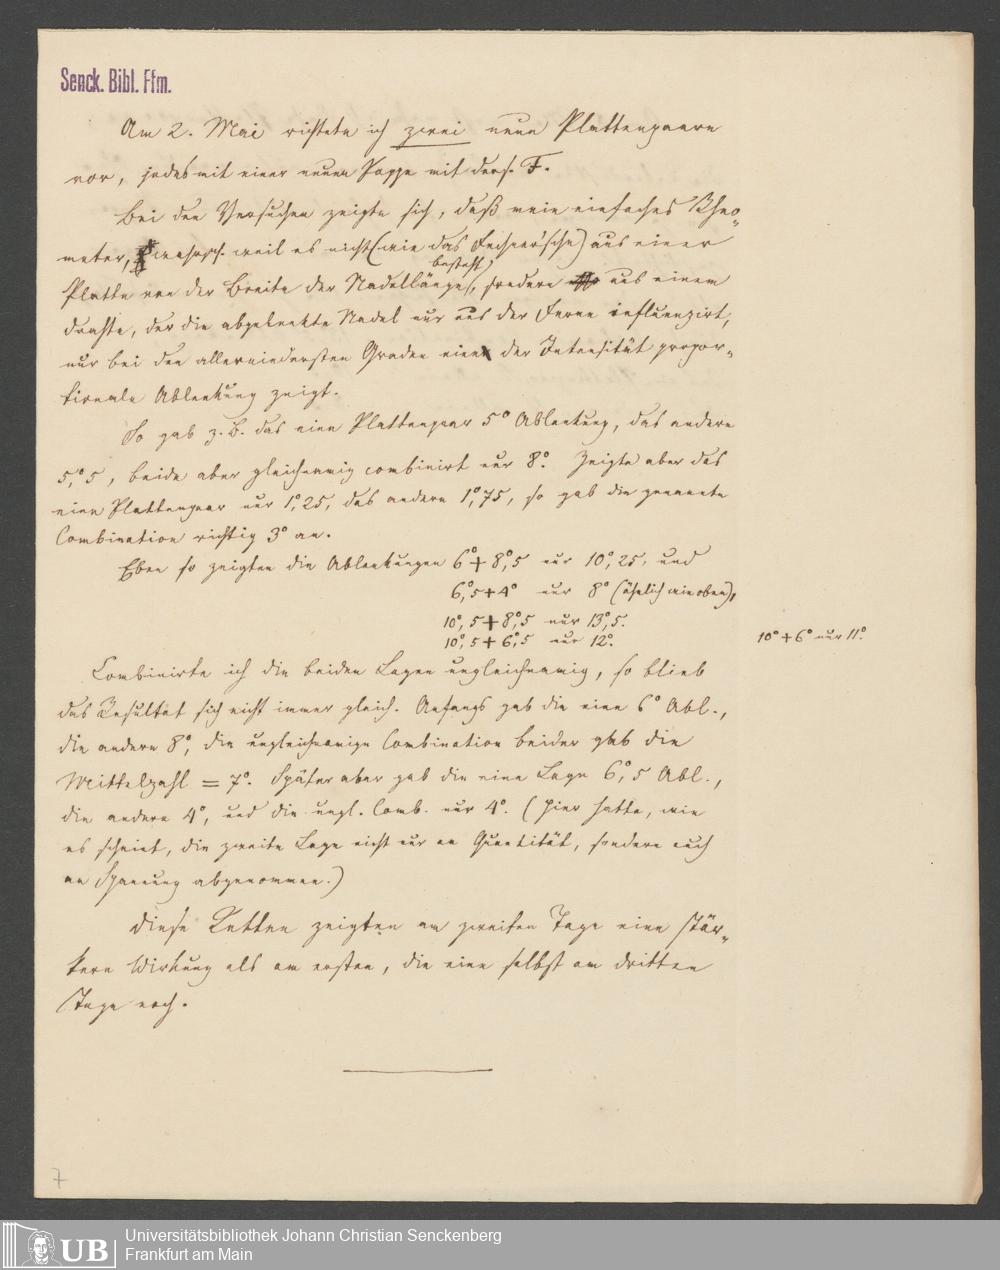 Senck. Bibl. Ffm.
Am 2. Mai richtete ich zwei neue Plattenpaare
vor, jedes mit einer neuen Pappe mit ders. F.
Bei den Versuchen zeigte sich, daß mein einfaches Rheo-
meter, weil es nicht (wie das Fechner'sche) aus einer
Platte von der Breite der Nadellänge besteht, sondern aus einem
Drahte, der die abgelenkte Nadel nur aus der Ferne influenzirt,
nur bei den allerniedersten Graden eine der Intensität propor-
tionale Ablenkung zeigt.
So gab z. B. das eine Plattenpaar 5° Ablenkung, das andere
5,°5, beide aber gleichnamig combinirt nur 8°. Zeigte aber das
eine Plattenpaar nur 1,°25, das andere 1,°75, so gab die genannte
Combination richtig 3° an.
Eben so zeigten die Ablenkungen 6° + 8,°5 nur 10,°25, und
6,°5 + 4° nur 8° (ähnlich wie oben),
10,°5 + 8,°5 nur 13,°5.
10,°5 + 6,°5 nur 12°.
10° + 6° nur 11°.
Combinirte ich die beiden Lagen ungleichnamig, so blieb
das Resultat sich nicht immer gleich. Anfangs gab die eine 6° Abl.,
die andere 8°, die ungleichnamige Combination beider gab die
Mittelzahl = 7°. Später aber gab die eine Lage 6,°5 Abl.,
die andere 4°, und die ungl. Comb. nur 4°. (Hier hatte, wie
es scheint, die zweite Lage nicht nur an Quantität, sondern auch
an Spannung abgenommen.)
Diese Ketten zeigten am zweiten Tage eine stär-
kere Wirkung als am ersten, die eine selbst am dritten
Tage noch.
7
UB
Universitätsbibliothek Johann Christian Senckenberg
Frankfurt am Main